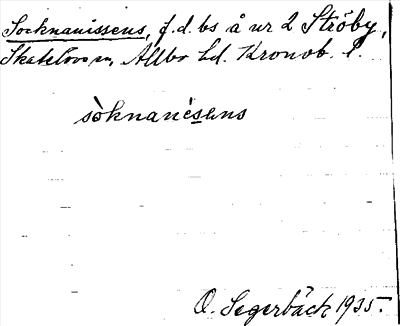 Socknanissens, f.d. bs å nr 2 Ströby,
Skatelövs sn, Allbo hd. Kronob. l.
sòknanísens
O. Segerbäck 1935.